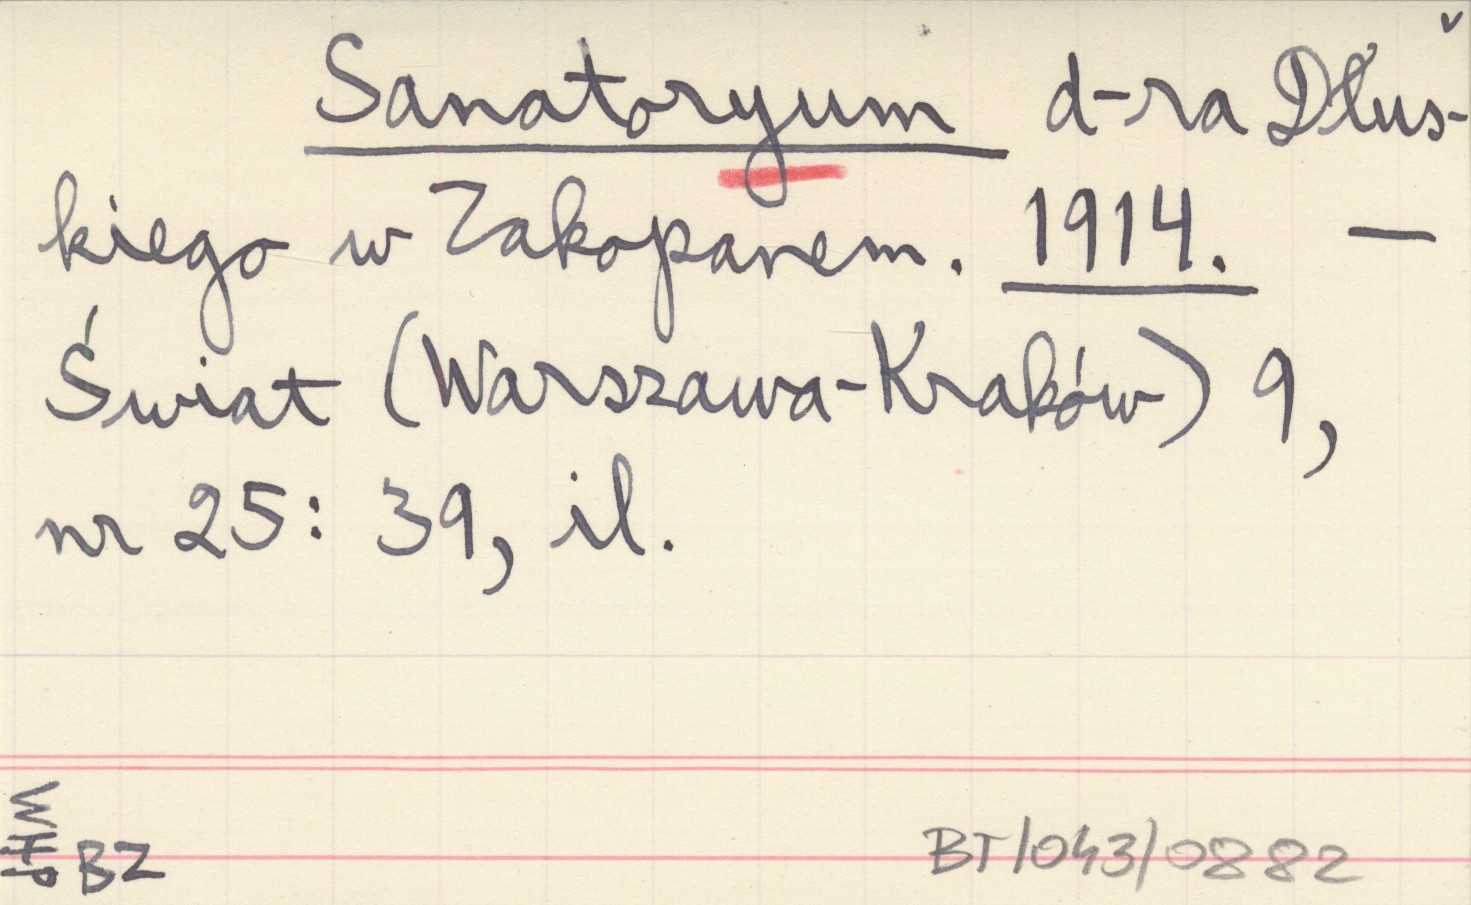 Sanatoryum d-ra Dłus-
kiego w Zakopanem. 1914. —
Świat (Warszawa-Kraków) 9,
nr 25: 39, il.
BZ
BT/043/0882